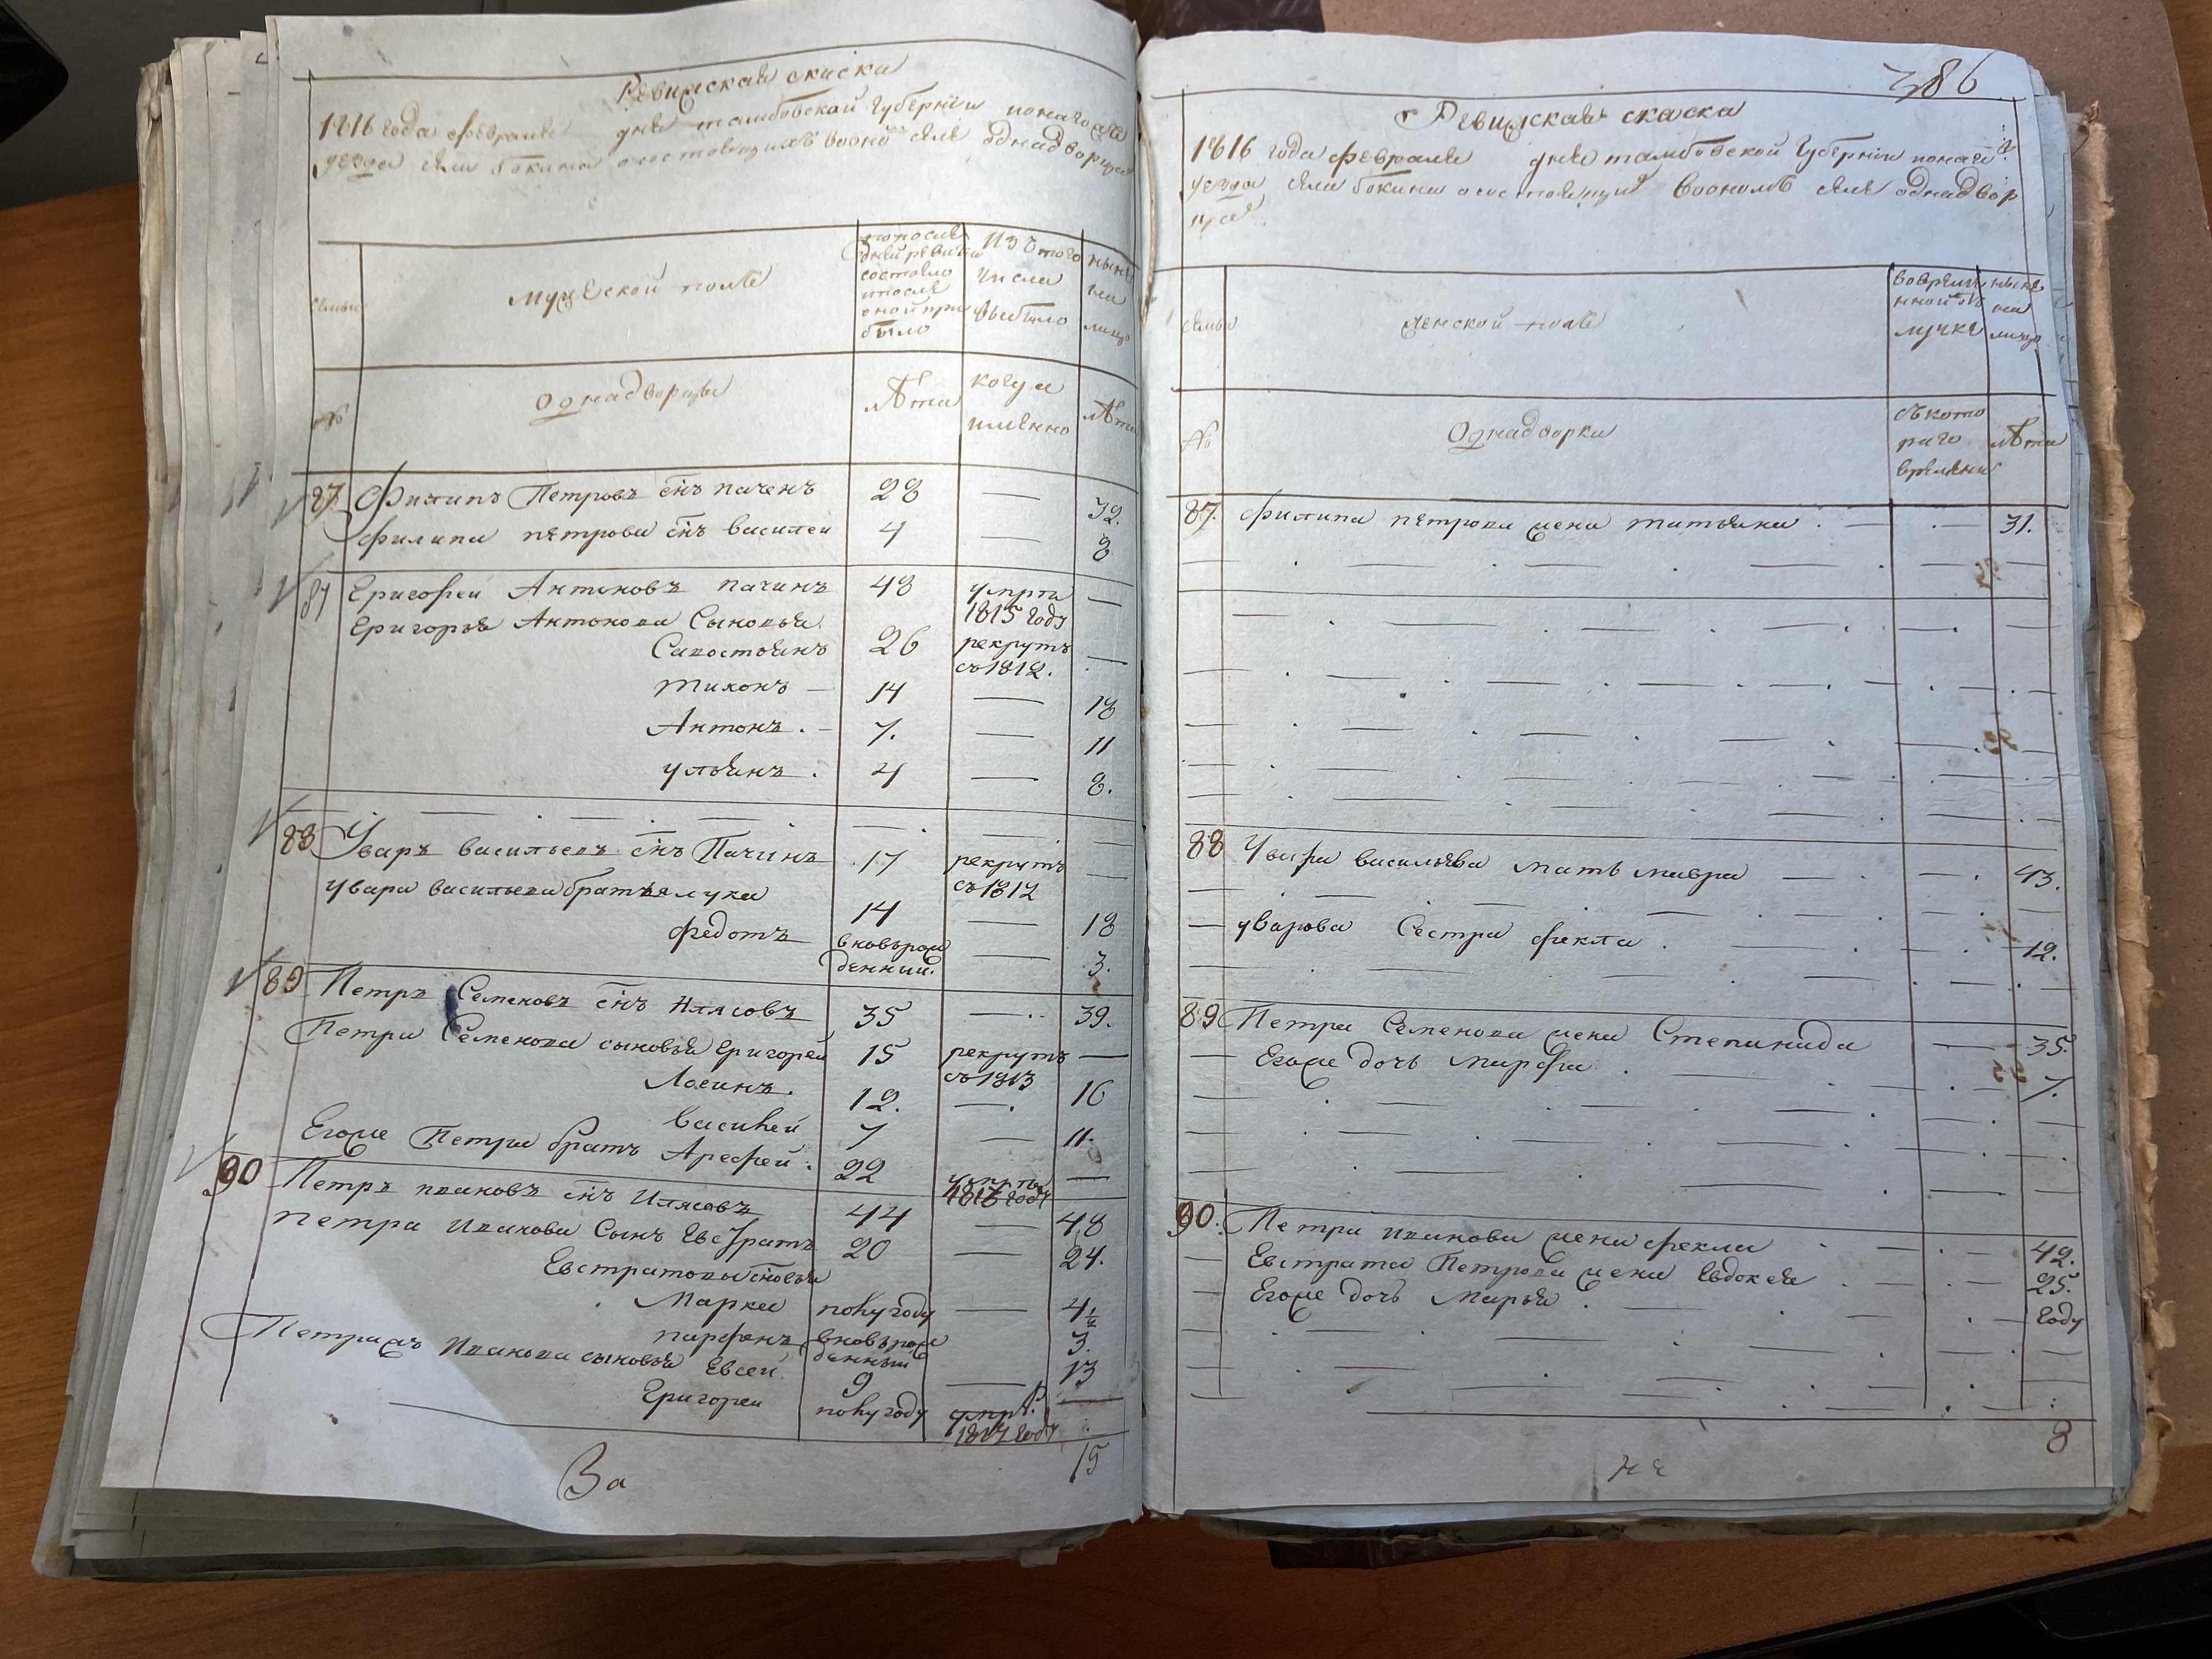 Ревижская скаска
1816 года февраля дня тамбовской губернии
уезда села бокина о состоящихъ воономъ селе однадворцахъ
семьи
мужеской полъ
попослѣ
дней ревизи
состояло
ипосле
оной при
было
изътого
числа
выбыло
ныне
на
лицо
№
Однадворцы
лѣта
когда
имянно
лѣта
87 Филипъ Петровъ снъ паченъ 28 — 32.
филипа петрова снъ василеи 4 — 8
87 Григореи Антоновъ пачинъ 48 умре —
1815 году
Григорья Антонова Сыновья
Савостьянъ 26 рекрутъ —
съ 1812.
тихонъ — 14 — 18
Антонъ . — 7. — 11
ульянъ . 4 — 8.
88 Уваръ васильевъ снъ Пачинъ 17 рекрутъ —
съ 1812
увара васильева братья лука 14 — 18
федотъ вновьрож — 3.
денний.
89 Петръ Семеновъ снъ Илясовъ 35 — 39.
Петра Семенова сыновья григорей 15 рекрутъ —
съ 1813
Логинъ. 12. — 16
василей 7 — 11.
Егоже Петра братъ Арефей . 22 умре —
1813 году
90 Петръ ивановъ снъ Илясовъ 44 — 48
петра Иванова Сынъ Евстратъ 20 — 24.
Евстратовы сновья
Марки полугоду — 4½
парфенъ вновьрож 3.
денныи
Петражъ Иванова сыновья Евсей 9 — 13
Григореи полугоду умре —
1814 году
15
За
386
Ревижская скаска
1816 года февраля дня тамбовской губернии
уезда села бокина о состоящихъ воономъ селе однадвор
цахъ
семьи
женской полъ
вовремян
ной отъ
лучке
ныне
на
лицо
№
Однадворки
съкото
раго
времяни
лѣта
87. Филипа петрова жена татьяна . — . — 31.
88 Увара васильева мать мавра — . — 43.
уварова Сестра фекла . — 12.
89 Петра Семенова жена Степанида — 35.
Егоже дочь Марфа . — 7.
90. Петра иванова жена фекла . — . — 42.
Евстрата Петрова жена Евдокея . — . — 25.
Егоже дочь Марья . — году
8